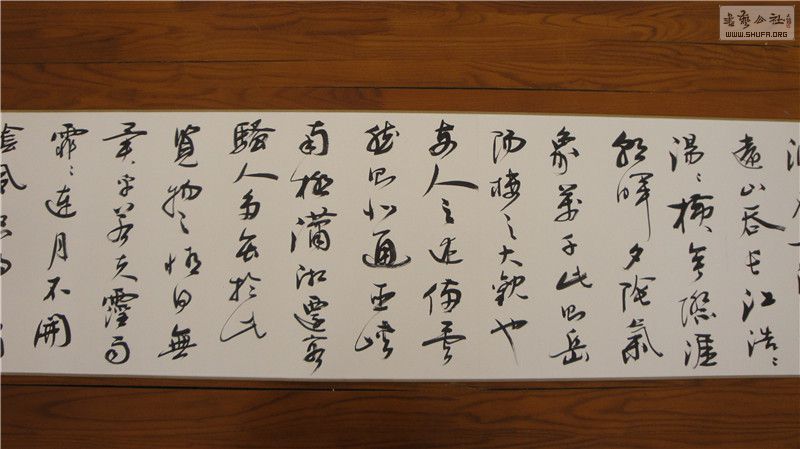 遠山吞長江浩〻
湯〻橫無際涯
朝暉夕陰氣
象萬千此則岳
陽樓之大觀也
前人之述備矣
然則北通巫峽
南極瀟湘遷客
騷人多會於此
覽物之情得無
異乎若夫霪雨
霏〻連月不開
陰風
書藝公社
WWW.SHUFA.ORG